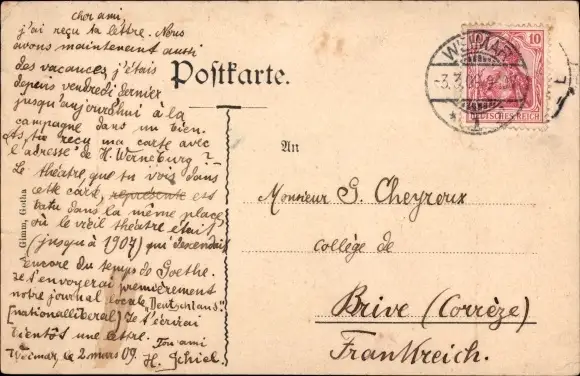 cher ami,
j'ai reçu ta lettre. Nous
avons maintenant aussi
des vacances, j'étais
depuis vendredi dernier
jusqu'aujourd'hui à la
campagne dans un bien.
As tu reçu ma carte avec
l'adresse de H. Werneburg?
Le théatre, que tu vois dans
cette carte, représente est
batu dans la même place,
où le vieil théatre était
(jusqu'à 1907) qui descendait
encore du temps de Goethe.
Je t'envoyerai premièrement
notre journal locale "Deutschland".
(nationalliberal) Je t'écrirai
bientôt une lettre.
Ton ami
Weimar, le 2 mars 09. H. Schiel.
Glimm, Gotha
Postkarte.
An
WEIMAR
1
10
DEUTSCHES REICH
Monsieur G. Cheyroux
collège de
Brive (Corrèze)
Frankreich.